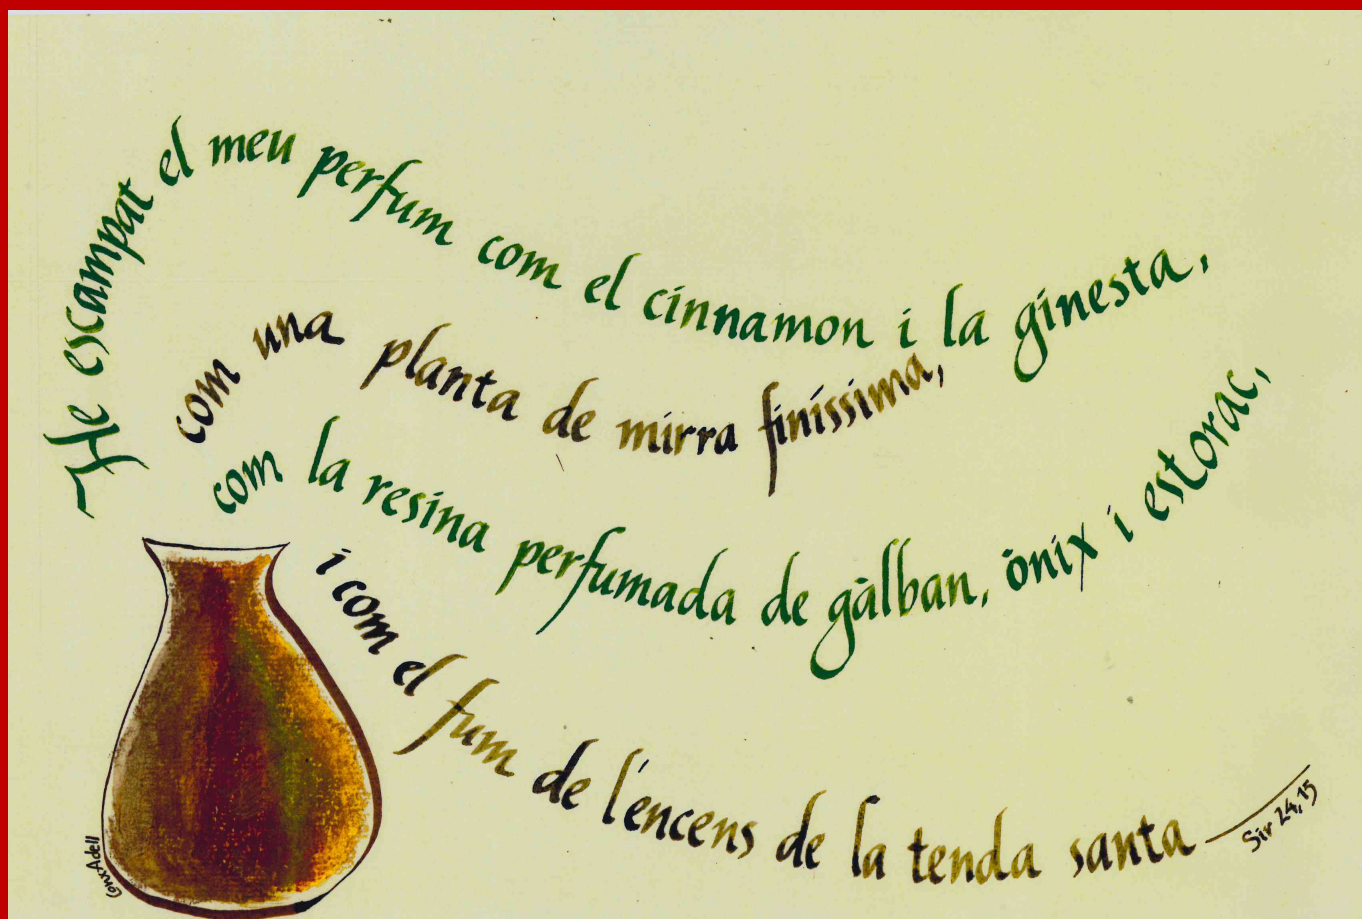 He escampat el meu perfum com el cinnamon i la ginesta,
com una planta de mirra finíssima,
com la resina perfumada de gàlban, ònix i estorac,
i com el fum de l'encens de la tenda santa
Sir 24,15
ConxAdell